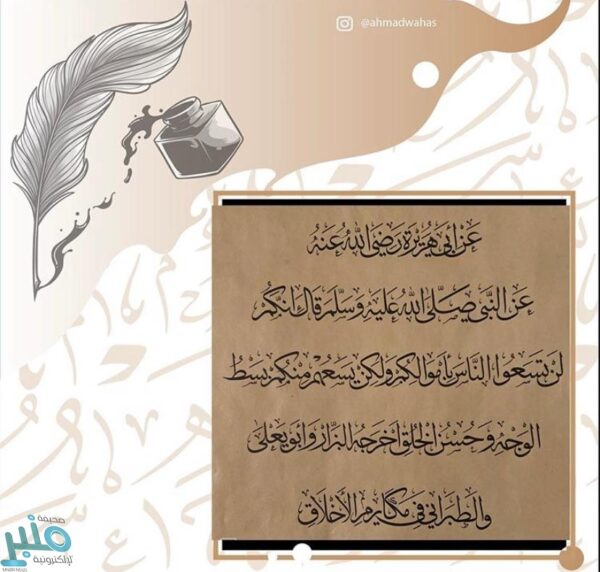 @ahmadwahas
عَنْ أَبِي هُرَيْرَةَ رَضِيَ اللهُ عَنْهُ
عَنِ النَّبِيِّ صَلَّى اللهُ عَلَيْهِ وَسَلَّمَ قَالَ إِنَّكُمْ
لَنْ تَسَعُوا النَّاسَ بِأَمْوَالِكُمْ وَلَكِنْ يَسَعُهُمْ مِنْكُمْ بَسْطُ
الوَجْهِ وَحُسْنُ الْخُلُقِ أَخْرَجَهُ الْبَزَّارُ وَأَبُو يَعْلَى
وَالطَّبَرَانِي فِي مَكَارِمِ الأَخْلَاقِ
صحيفة
منبر
الإلكترونية